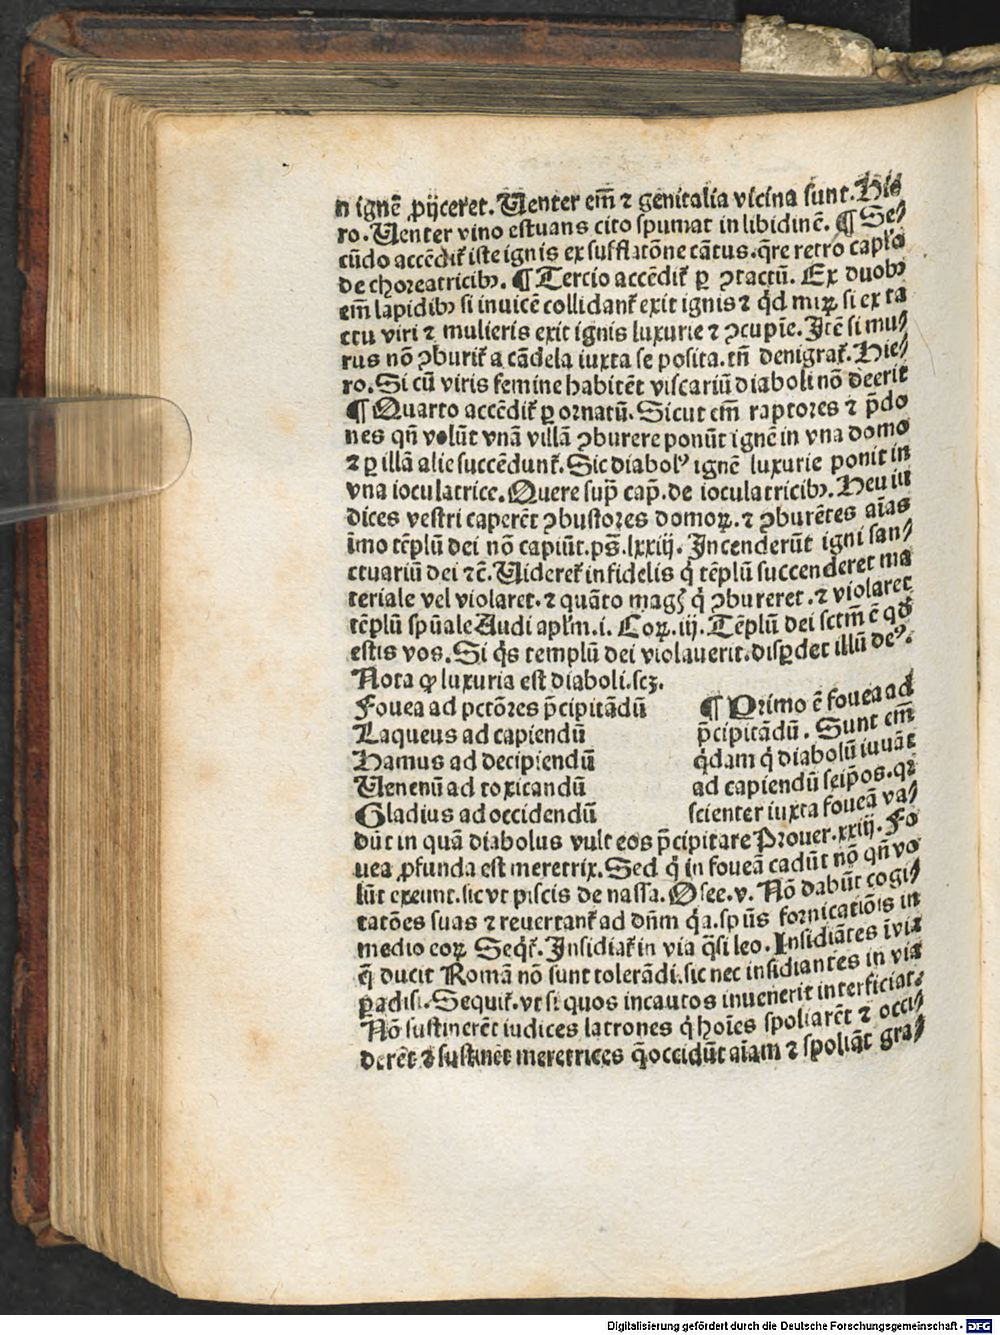 n ignē ꝓijceret. Uenter em̄ ⁊ genitalia vicina sunt. Hie
ro. Uenter vino estuans cito spumat in libidinē. ¶ Se⸗
cūdo accēdit᷑ iste ignis ex sufflatōne cātus. q̄re retro cap̄lo
de choreatricibꝫ. ¶ Tercio accēdit᷑ ꝑ ꝯtactū. Ex duobꝫ
em̄ lapidibꝫ si inuicē collidant᷑ exit ignis ⁊ qd̄ miꝝ si ex ta
ctu viri ⁊ mulieris exit ignis luxurie ⁊ ꝯcupīe. Itē si mu⸗
rus nō ꝯburit᷑ a cādela iuxta se posita. tn̄ denigrat᷑. Hie⸗
ro. Si cū viris femine habitēt viscariū diaboli nō deerit
¶ Quarto accēdit᷑ ꝑ ornatū. Sicut em̄ raptores ⁊ p̄do
nes qn̄ volūt vnā villā ꝯburere ponūt ignē in vna domo
⁊ ꝑ illā alie succēdunt᷑. Sic diabolꝰ ignē luxurie ponit in
vna ioculatrice. Quere sup̄ cap̄. de ioculatricibꝫ. Heu iu
dices vestri caperēt ꝯbustores domoꝝ. ⁊ ꝯburētes aīas
īmo tēplū dei nō capiūt. ps̄. lxxiij. Incenderūt igni san⸗
ctuariū dei ⁊c̄. Uideret᷑ infidelis q̇ tēplū succenderet ma
teriale vel violaret. ⁊ quāto magꝭ q̇ ꝯbureret. ⁊ violaret
tēplū spūale Audi apl̄m. i. Coꝝ. iij. Tēplū dei sctm̄ ē qd̄
estis vos. Si q̇s templū dei violauerit. disꝑdet illū deꝰ.
Nota ꝙ luxuria est diaboli. scꝫ.
Fouea ad pctōres p̄cipitādū
Laqueus ad capiendū
Hamus ad decipiendū
Uenenū ad toxicandū
Gladius ad occidendū
¶ Primo ē fouea ad
p̄cipitādū. Sunt em̄
q̇dam q̇ diabolū iuuāt
ad capiendū seip̄os. qꝛ
scienter iuxta foueā va⸗
dūt in quā diabolus vult eos p̄cipitare Prouer. xxiij. Fo
uea ꝓfunda est meretrix. Sed q̇ in foueā cadūt nō qn̄ vo
lūt exeunt. sic vt piscis de nassa. Osee. v. Nō dabūt cogi⸗
tatōes suas ⁊ reuertant᷑ ad dn̄m q̇a. spūs fornicatiōis in
medio eoꝝ Seqt᷑. Insidiat᷑ in via q̄si leo. Insidiātes ī via
q̄ ducit Romā nō sunt tolerādi. sic nec insidiantes in via
ꝑadisi. Sequit᷑. vt si quos incautos inuenerit interficiat.
Nō sustinerēt iudices latrones q̇ hoīes spoliarēt ⁊ occi⸗
derēt ⁊ sustinēt meretrices q̄ occidūt aīam ⁊ spoliāt gra⸗
Digitalisierung gefördert durch die Deutsche Forschungsgemeinschaft - DFG